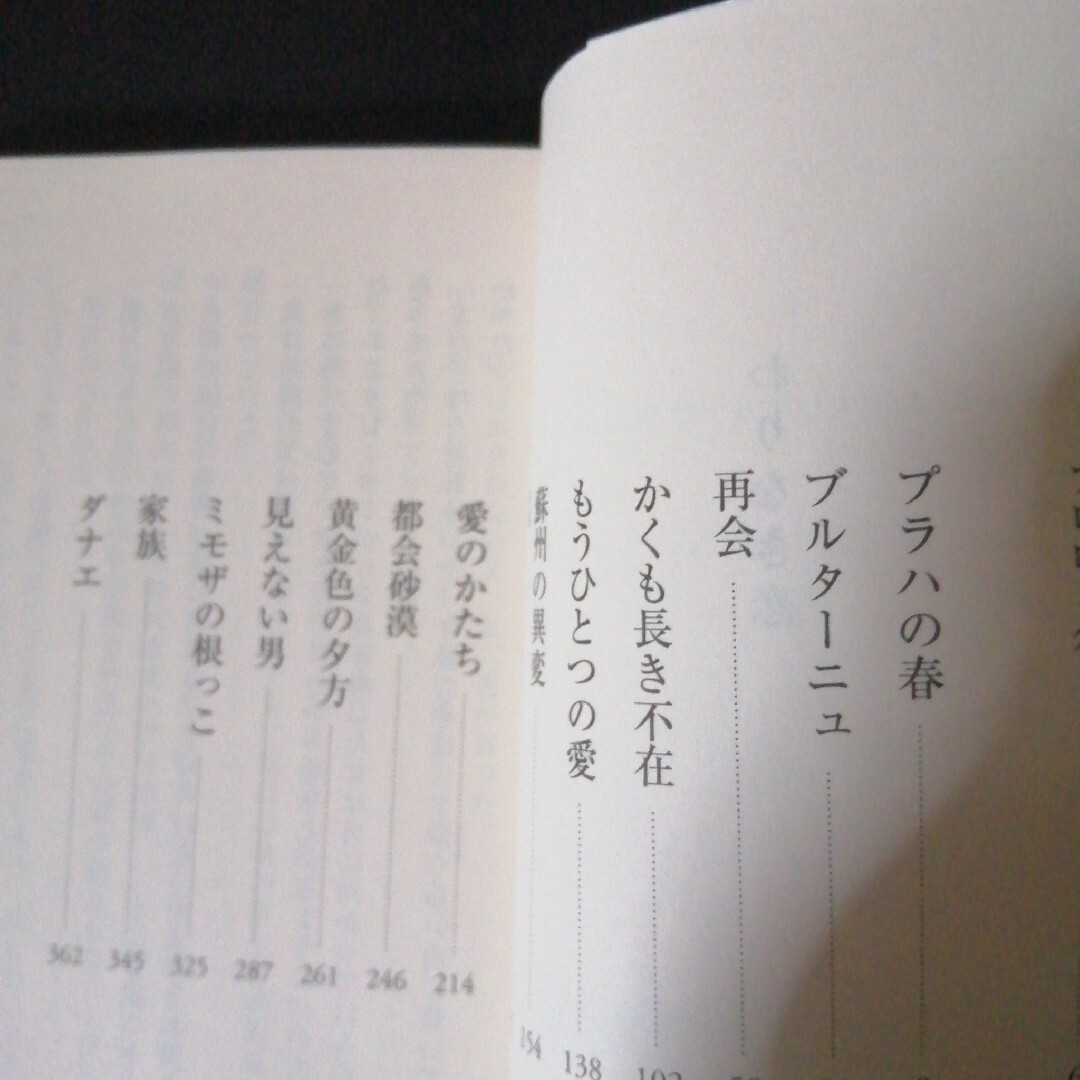 プラハの春
ブルターニュ
再会
かくも長き不在 102
もうひとつの愛 138
蘇州の異変 154
愛のかたち 214
都会砂漠 246
黄金色の夕方 261
見えない男 287
ミモザの根っこ 325
家族 345
ダナエ 362